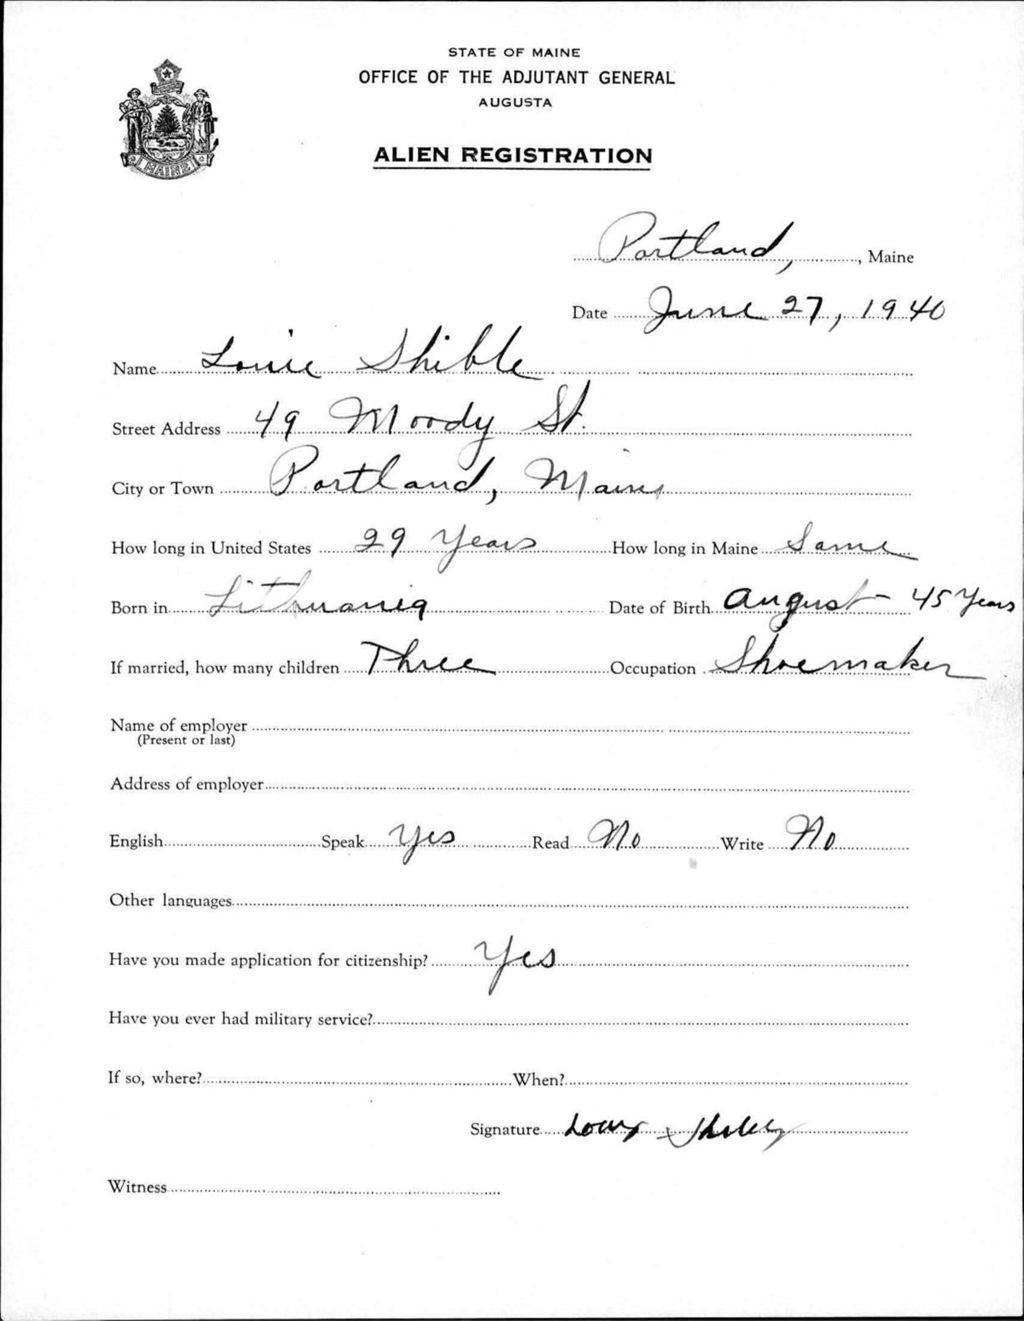 STATE OF MAINE
OFFICE OF THE ADJUTANT GENERAL
AUGUSTA
ALIEN REGISTRATION
MAINE
Portland, , Maine
Date June 27, 1940
Name Louie Shible
Street Address 49 Moody St.
City or Town Portland, Maine
How long in United States 29 Years How long in Maine Same
Born in Lithuania Date of Birth August - 45 Years
If married, how many children Three Occupation Shoemaker
Name of employer
(Present or last)
Address of employer
English Speak Yes Read No Write No
Other languages
Have you made application for citizenship? Yes
Have you ever had military service?
If so, where? When?
Signature
Witness